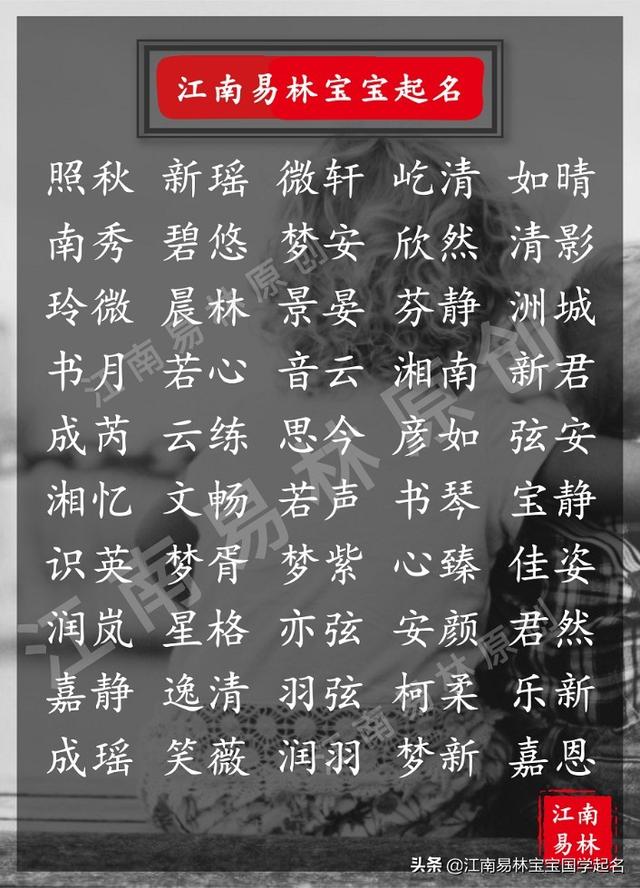 江南易林宝宝起名
照秋 新瑶 微轩 屹清 如晴
南秀 碧悠 梦安 欣然 清影
玲微 晨林 景晏 芬静 洲城
书月 若心 音云 湘南 新君
成芮 云练 思今 彦如 弦安
湘忆 文畅 若声 书琴 宝静
识英 梦胥 梦紫 心臻 佳姿
润岚 星格 亦弦 安颜 君然
嘉静 逸清 羽弦 柯柔 乐新
成瑶 笑薇 润羽 梦新 嘉恩
江南易林原创
江南易林原创
江南易林原创
江南
易林
头条 @江南易林宝宝国学起名